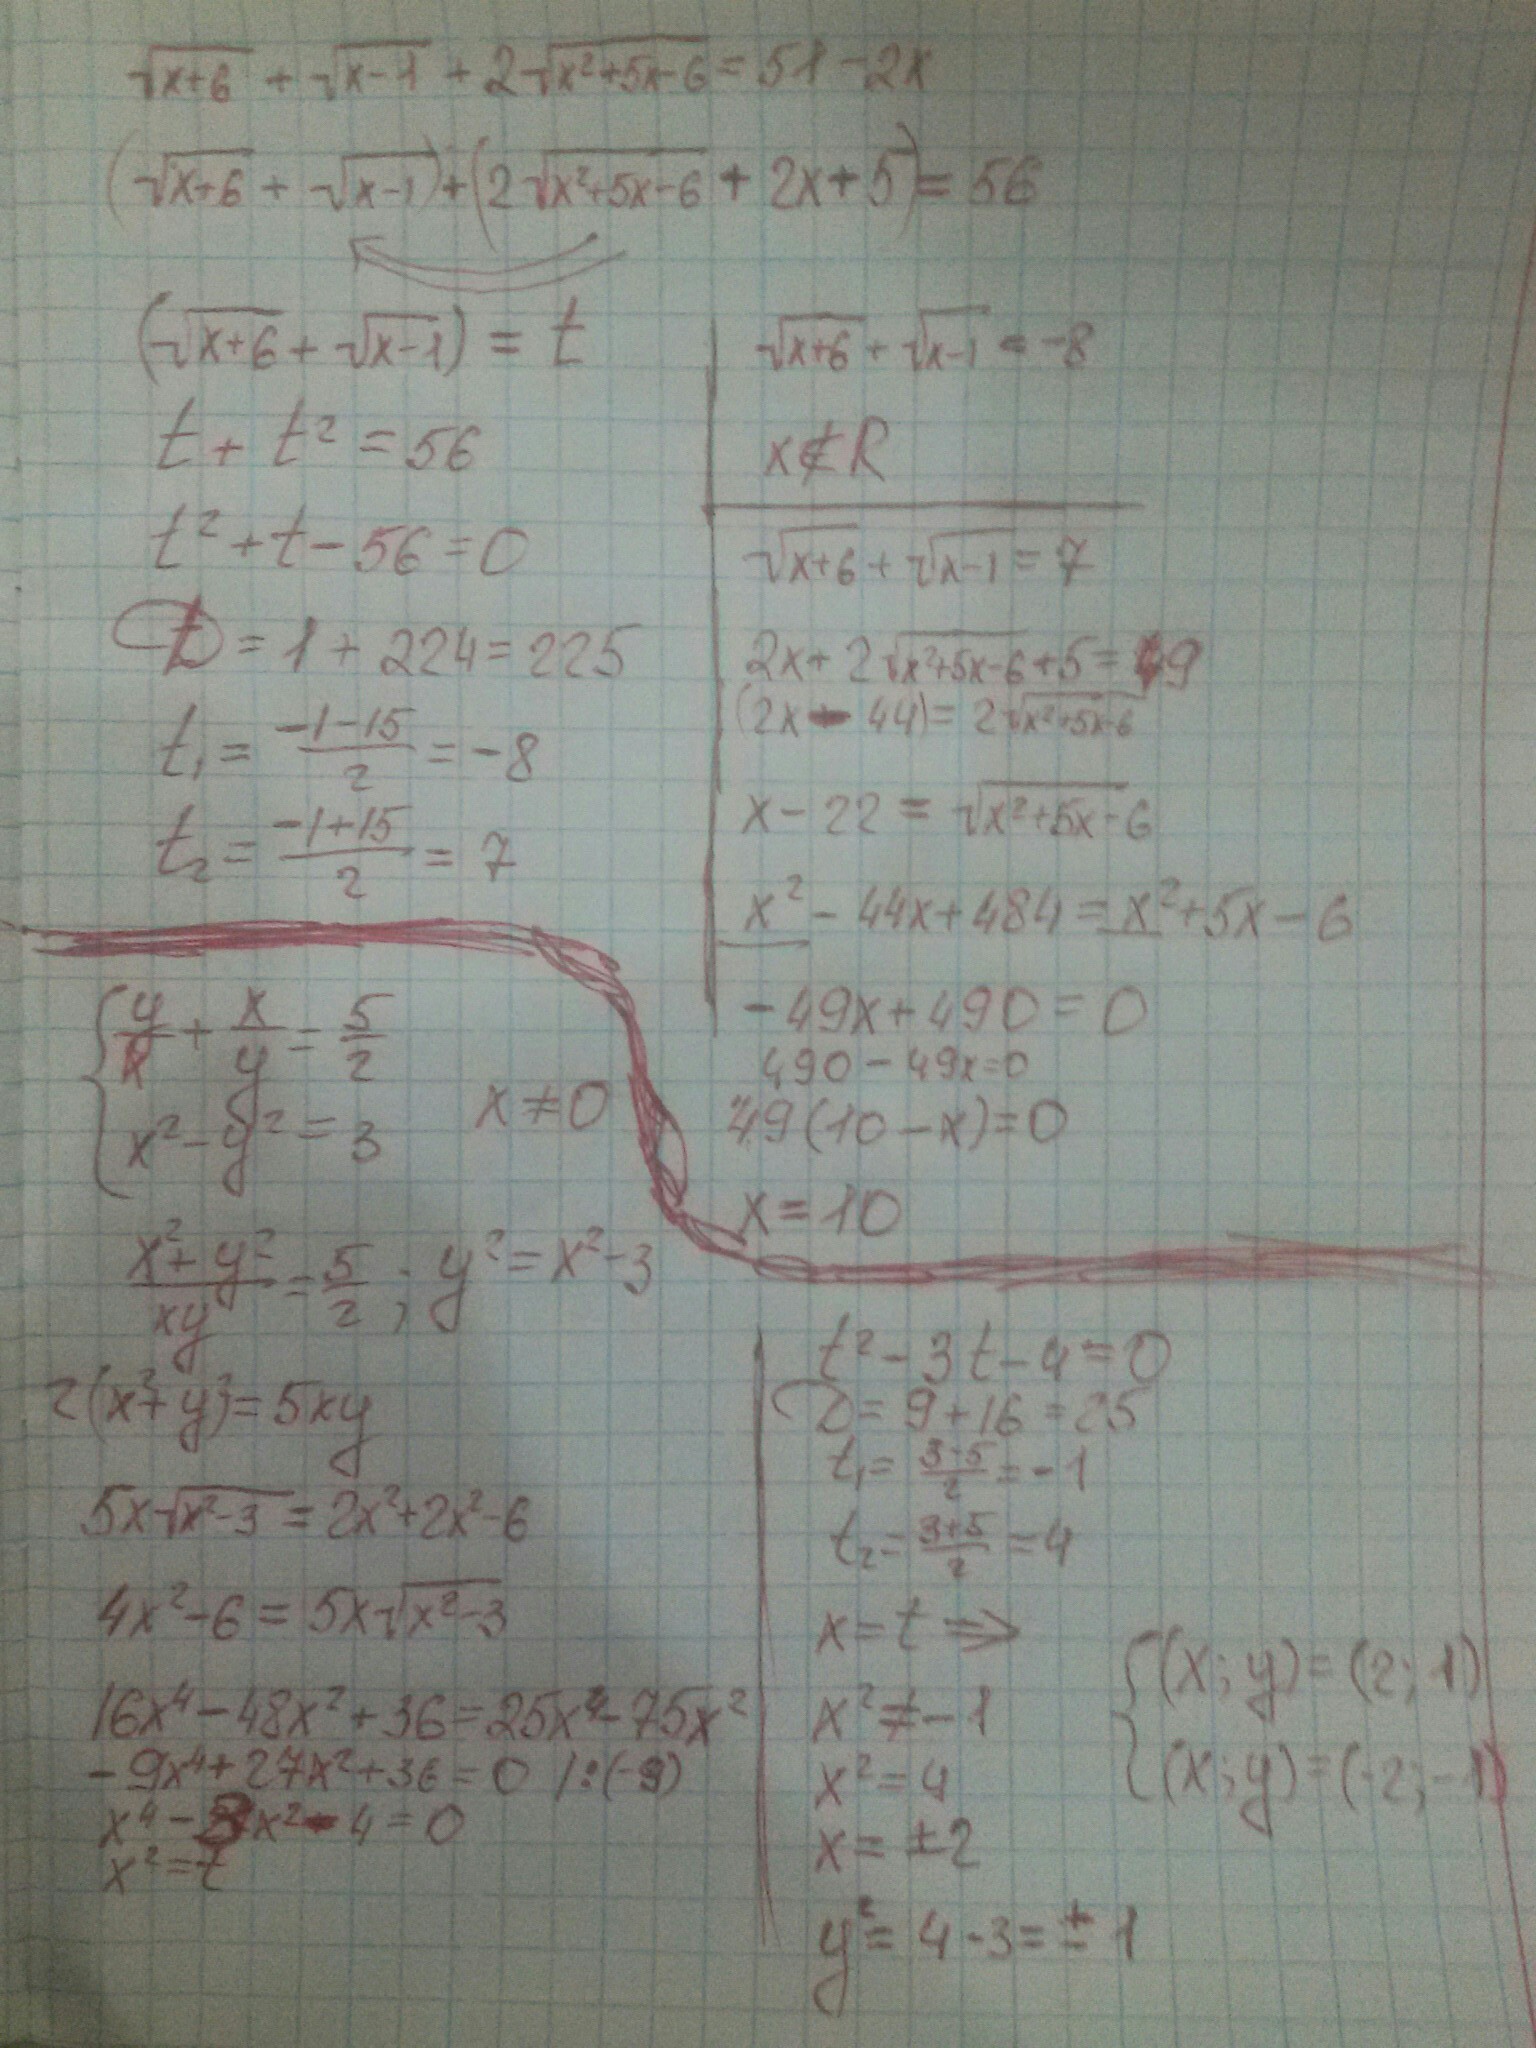 √(x+6) + √(x-1) + 2√(x²+5x-6) = 51 - 2x
(√(x+6) + √(x-1)) + (2√(x²+5x-6) + 2x + 5) = 56
(√(x+6) + √(x-1)) = t
t + t² = 56
t² + t - 56 = 0
D = 1 + 224 = 225
t₁ = (-1-15)/2 = -8
t₂ = (-1+15)/2 = 7
√(x+6) + √(x-1) = -8
x ∉ R
√(x+6) + √(x-1) = 7
2x + 2√(x²+5x-6) + 5 = 49
(2x - 44) = 2√(x²+5x-6)
x - 22 = √(x²+5x-6)
x² - 44x + 484 = x² + 5x - 6
-49x + 490 = 0
490 - 49x = 0
49(10 - x) = 0
x = 10
{ y/x + x/y = 5/2
x² - y² = 3
x ≠ 0
(x² + y²)/xy = 5/2 ; y² = x² - 3
2(x² + y²) = 5xy
5x√(x²-3) = 2x² + 2x² - 6
4x² - 6 = 5x√(x²-3)
16x⁴ - 48x² + 36 = 25x⁴ - 75x²
-9x⁴ + 27x² + 36 = 0 /:(-9)
x⁴ - 3x² - 4 = 0
x² = t
t² - 3t - 4 = 0
D = 9 + 16 = 25
t₁ = (3-5)/2 = -1
t₂ = (3+5)/2 = 4
x = t ⇒
x² ≠ -1
x² = 4
x = ±2
y² = 4 - 3 = ± 1
{ (x; y) = (2; 1)
(x; y) = (-2; -1)